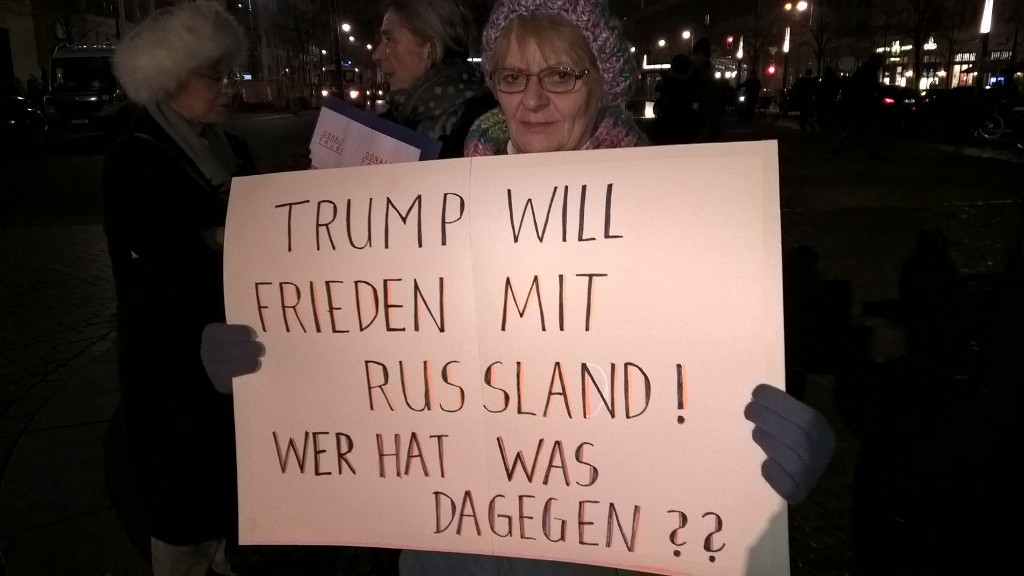 DONALD
DONAL
TRUMP WILL
FRIEDEN MIT
RUSSLAND!
WER HAT WAS
DAGEGEN ??